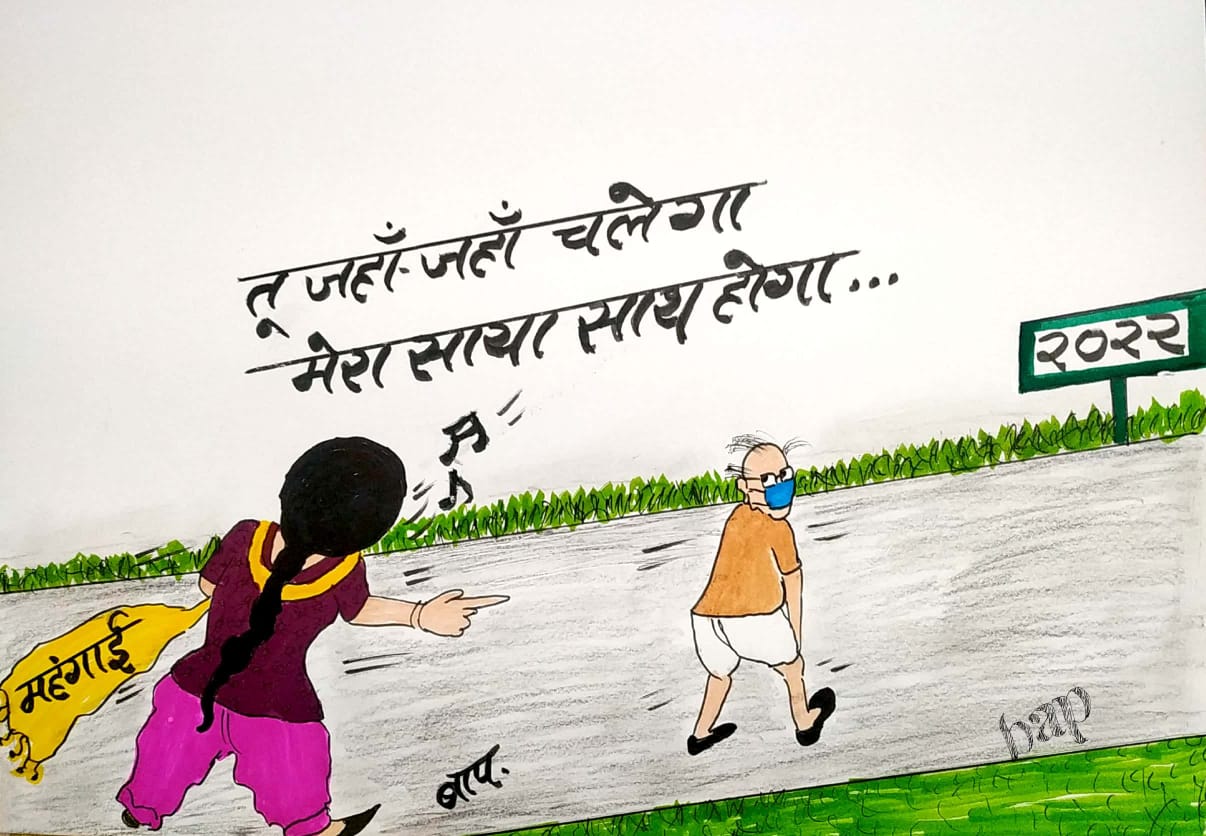 तू जहाँ-जहाँ चलेगा
मेरा साया साथ होगा...
२०२२
महंगाई
बाप.
bap